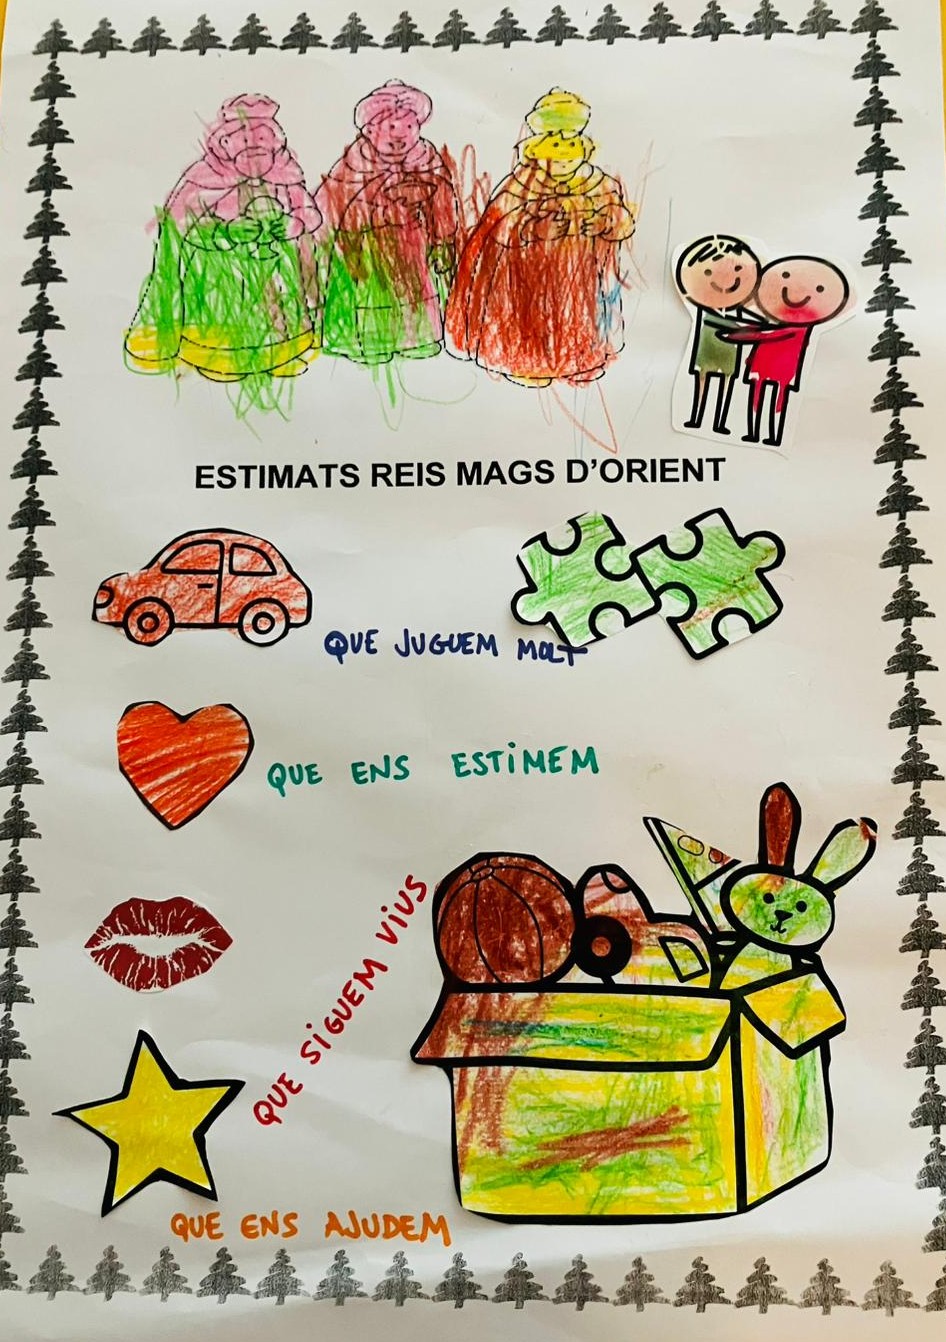 ESTIMATS REIS MAGS D'ORIENT
QUE JUGUEM MOLT
QUE ENS ESTIMEM
QUE SIGUEM VIUS
QUE ENS AJUDEM